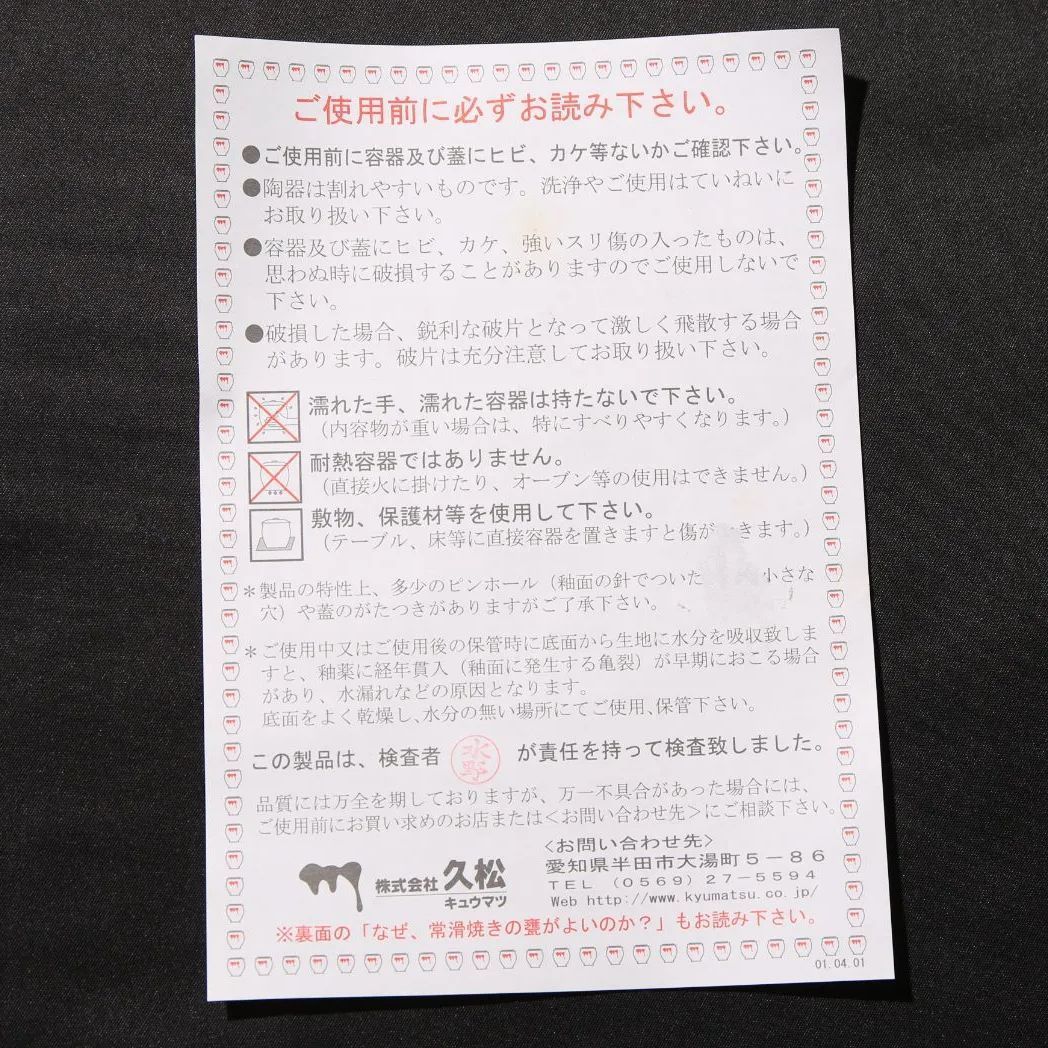 ご使用前に必ずお読み下さい。
●ご使用前に容器及び蓋にヒビ、カケ等ないかご確認下さい。
●陶器は割れやすいものです。洗浄やご使用はていねいに
お取り扱い下さい。
●容器及び蓋にヒビ、カケ、強いスリ傷の入ったものは、
思わぬ時に破損することがありますのでご使用しないで
下さい。
●破損した場合、鋭利な破片となって激しく飛散する場合
があります。破片は充分注意してお取り扱い下さい。
濡れた手、濡れた容器は持たないで下さい。
（内容物が重い場合は、特にすべりやすくなります。）
耐熱容器ではありません。
（直接火に掛けたり、オーブン等の使用はできません。）
敷物、保護材等を使用して下さい。
（テーブル、床等に直接容器を置きますと傷が きます。）
＊製品の特性上、多少のピンホール（釉面の針でついた 小さな
穴）や蓋のがたつきがありますがご了承下さい。
＊ご使用中又はご使用後の保管時に底面から生地に水分を吸収致しま
すと、釉薬に経年貫入（釉面に発生する亀裂）が早期におこる場合
があり、水漏れなどの原因となります。
底面をよく乾燥し、水分の無い場所にてご使用、保管下さい。
この製品は、検査者 水野 が責任を持って検査致しました。
品質には万全を期しておりますが、万一不具合があった場合には、
ご使用前にお買い求めのお店または＜お問い合わせ先＞にご相談下さい。
株式会社 久松
キュウマツ
＜お問い合わせ先＞
愛知県半田市大湯町５－８６
ＴＥＬ （０５６９）２７－５５９４
Web http://www.kyumatsu.co.jp/
※裏面の「なぜ、常滑焼きの甕がよいのか？」もお読み下さい。
01.04.01